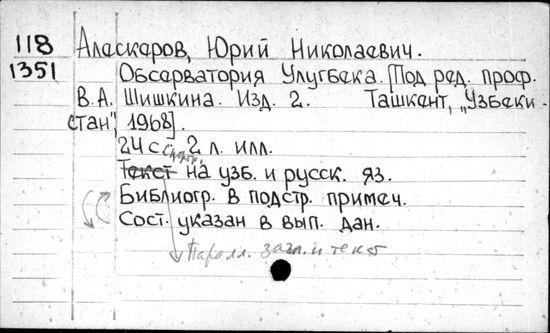 118 Аласкаров, Юрий Николаевич.
1351 Обсерватория Улугбека. [Под ред. проф.
В.А. Шишкина. Изд. 2. Ташкент, „Узбеки-
стан", 1968].
24 с. 2 л. илл.
Текст на узб. и русск. яз.
Библиогр. в подстр. примеч.
Сост. указан в вып. дан.
Паралл. загл. и текст